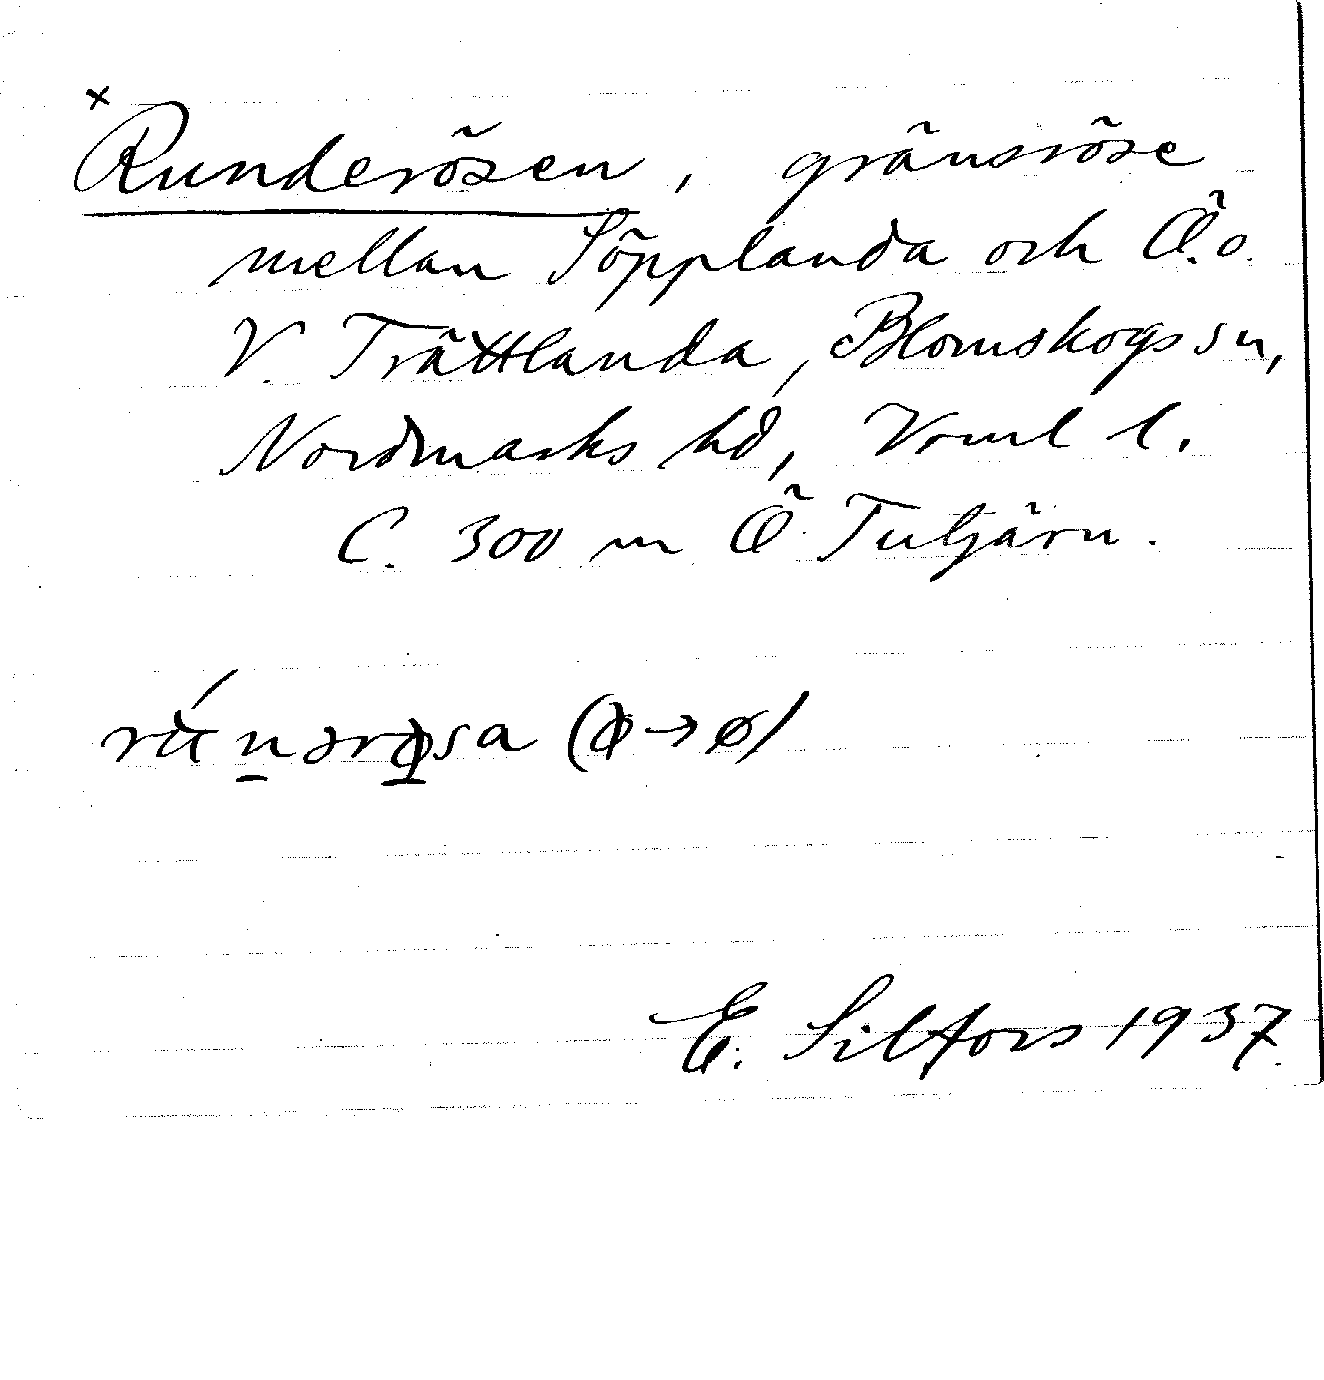 x
Runderösen, gränsröse
mellan Söpplanda och Ö. o.
V. Trättlanda, Blomskogs sn,
Nordmarks hd, Vrml l.
C. 300 m Ö Tutjärn.
E. Silfors 1937